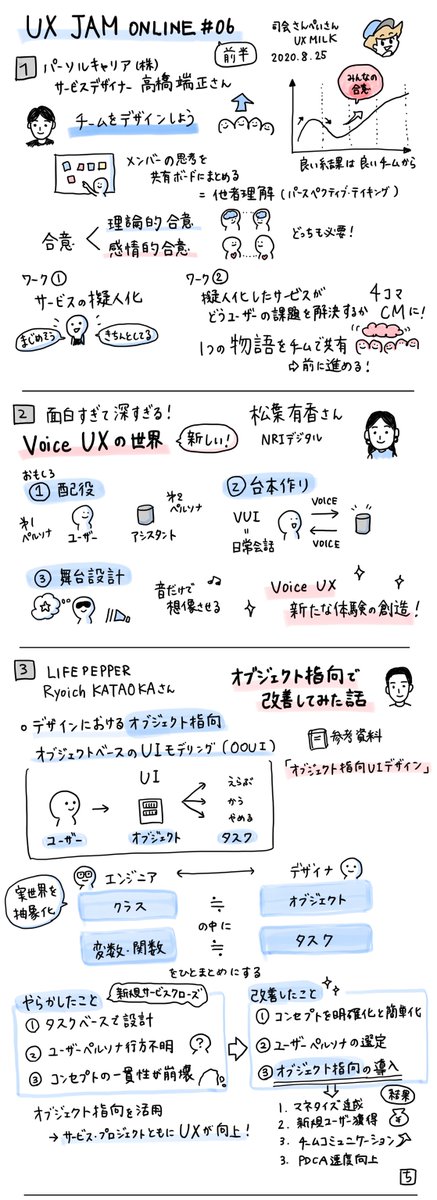 UX JAM ONLINE #06
前半
司会 さんぺいさん
UX MILK
2020.8.25
1 パーソルキャリア(株)
サービスデザイナー 高橋端正さん
チームをデザインしよう
みんなの
合意
良い結果は良いチームから
メンバーの思考を
共有ボードにまとめる
= 他者理解(パースペクティブ・テイキング)
合意
理論的合意
感情的合意
どっちも必要!
ワーク①
サービスの擬人化
まじめそう
きちんとしてる
ワーク②
擬人化したサービスが
どうユーザーの課題を解決するか
4コマ
CMに!
1つの物語をチムで共有
⇨前に進める!
2 面白すぎて深すぎる!
Voice UXの世界
新しい!
松葉有香さん
NRIデジタル
おもしろ
① 配役
第1
ペルソナ
ユーザー
第2
ペルソナ
アシスタント
② 台本作り
VUI
=
日常会話
VOICE
VOICE
③ 舞台設計
音だけで
想像させる
Voice UX
新たな体験の創造!
3 LIFE PEPPER
Ryoich KATAOKAさん
オブジェクト指向で
改善してみた話
○ デザインにおけるオブジェクト指向
オブジェクトベースのUIモデリング(OOUI)
参考資料
「オブジェクト指向UIデザイン」
UI
ユーザー
オブジェクト
タスク
えらぶ
かう
やめる
エンジニア
デザイナ
実世界を
抽象化
クラス
≒
オブジェクト
の中に
変数・関数
≒
タスク
をひとまとめにする
やらかしたこと
新規サービスクローズ
① タスクベースで設計
② ユーザーペルソナ行方不明
?
③ コンセプトの一貫性が崩壊
改善したこと
① コンセプトを明確化と簡単化
② ユーザーペルソナの選定
③ オブジェクト指向の導入
オブジェクト指向を活用
→ サービス・プロジェクトともにUXが向上!
結果
1. マネタイズ達成
2. 新規ユーザー獲得
3. チームコミュニケーション
3. PDCA速度向上
ち